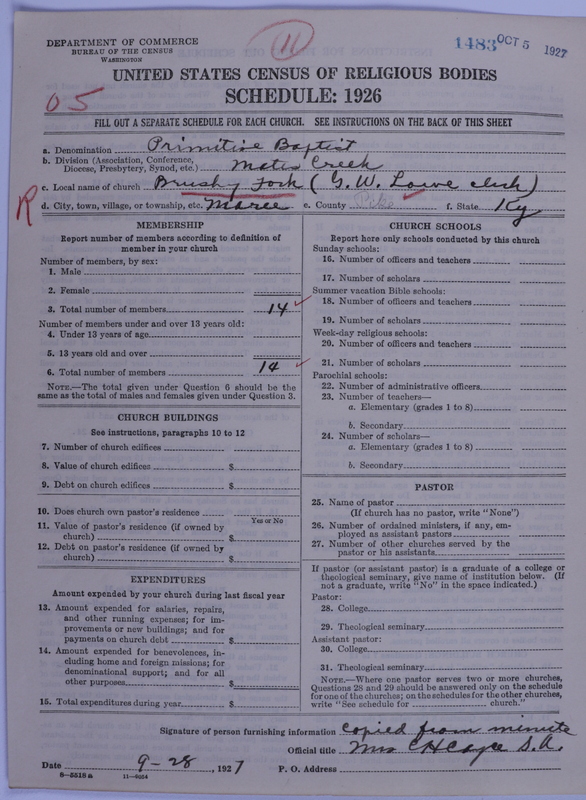 DEPARTMENT OF COMMERCE
BUREAU OF THE CENSUS
WASHINGTON
11
1483 OCT 5 1927
UNITED STATES CENSUS OF RELIGIOUS BODIES
SCHEDULE: 1926
05
FILL OUT A SEPARATE SCHEDULE FOR EACH CHURCH. SEE INSTRUCTIONS ON THE BACK OF THIS SHEET
a. Denomination Primitive Baptist
b. Division (Association, Conference, Diocese, Presbytery, Synod, etc.) Mates Creek
c. Local name of church Brushy Fork (G. W. Lowe clerk)
R
d. City, town, village, or township, etc. e. County Pike f. State Ky
MEMBERSHIP
Report number of members according to definition of
member in your church
Number of members, by sex:
1. Male
2. Female
3. Total number of members 14
Number of members under and over 13 years old:
4. Under 13 years of age
5. 13 years old and over
6. Total number of members 14
NOTE.—The total given under Question 6 should be the
same as the total of males and females given under Question 3.
CHURCH BUILDINGS
See instructions, paragraphs 10 to 12
7. Number of church edifices
8. Value of church edifices $
9. Debt on church edifices $
10. Does church own pastor's residence
Yes or No
11. Value of pastor's residence (if owned by
church) $
12. Debt on pastor's residence (if owned by
church) $
EXPENDITURES
Amount expended by your church during last fiscal year
13. Amount expended for salaries, repairs,
and other running expenses; for im-
provements or new buildings; and for
payments on church debt $
14. Amount expended for benevolences, in-
cluding home and foreign missions; for
denominational support; and for all
other purposes $
15. Total expenditures during year $
CHURCH SCHOOLS
Report here only schools conducted by this church
Sunday schools:
16. Number of officers and teachers
17. Number of scholars
Summer vacation Bible schools:
18. Number of officers and teachers
19. Number of scholars
Week-day religious schools:
20. Number of officers and teachers
21. Number of scholars
Parochial schools:
22. Number of administrative officers
23. Number of teachers—
a. Elementary (grades 1 to 8)
b. Secondary
24. Number of scholars—
a. Elementary (grades 1 to 8)
b. Secondary
PASTOR
25. Name of pastor
(If church has no pastor, write "None")
26. Number of ordained ministers, if any, em-
ployed as assistant pastors
27. Number of other churches served by the
pastor or his assistants
If pastor (or assistant pastor) is a graduate of a college or
theological seminary, give name of institution below. (If
not a graduate, write "No" in the space indicated.)
Pastor:
28. College
29. Theological seminary
Assistant pastor:
30. College
31. Theological seminary
NOTE.—Where one pastor serves two or more churches,
Questions 28 and 29 should be answered only on the schedule
for one of the churches; on the schedules for the other churches,
write "See schedule for church."
Signature of person furnishing information Copied from minute
Official title Mrs C H Cayce S.A.
Date 9-28, 1927 P. O. Address
8-5518 a 11-9054